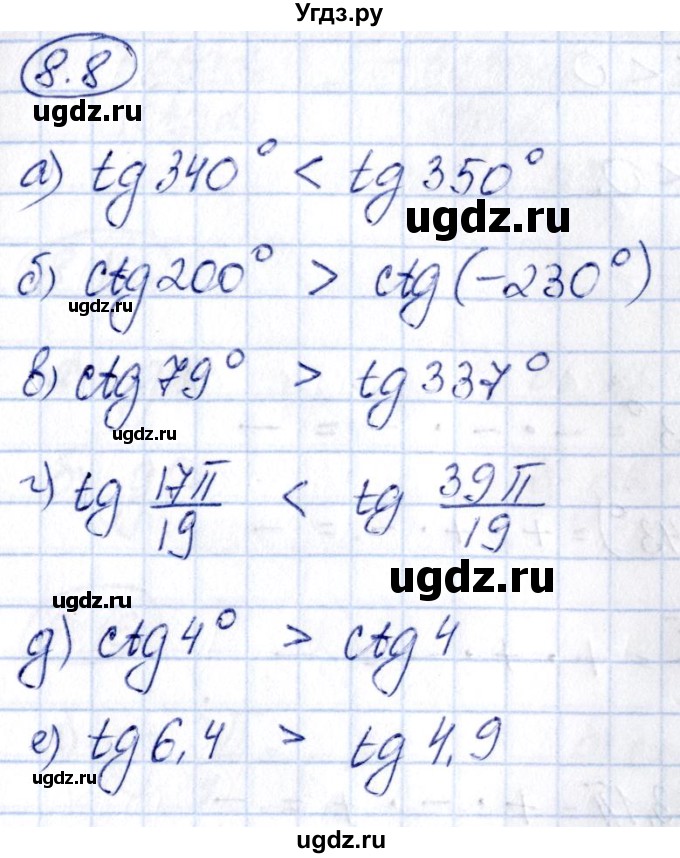 Угдз.ру
8.8
ugdz.ru
а) tg 340° < tg 350°
ugdz.ru
б) ctg 200° > ctg (-230°)
ugdz.ru
в) ctg 79° > tg 337°
ugdz.ru
г) tg 17π/19 < tg 39π/19
ugdz.ru
ugdz.ru
д) ctg 4° > ctg 4
е) tg 6,4 > tg 4,9
ugdz.ru
ugdz.ru